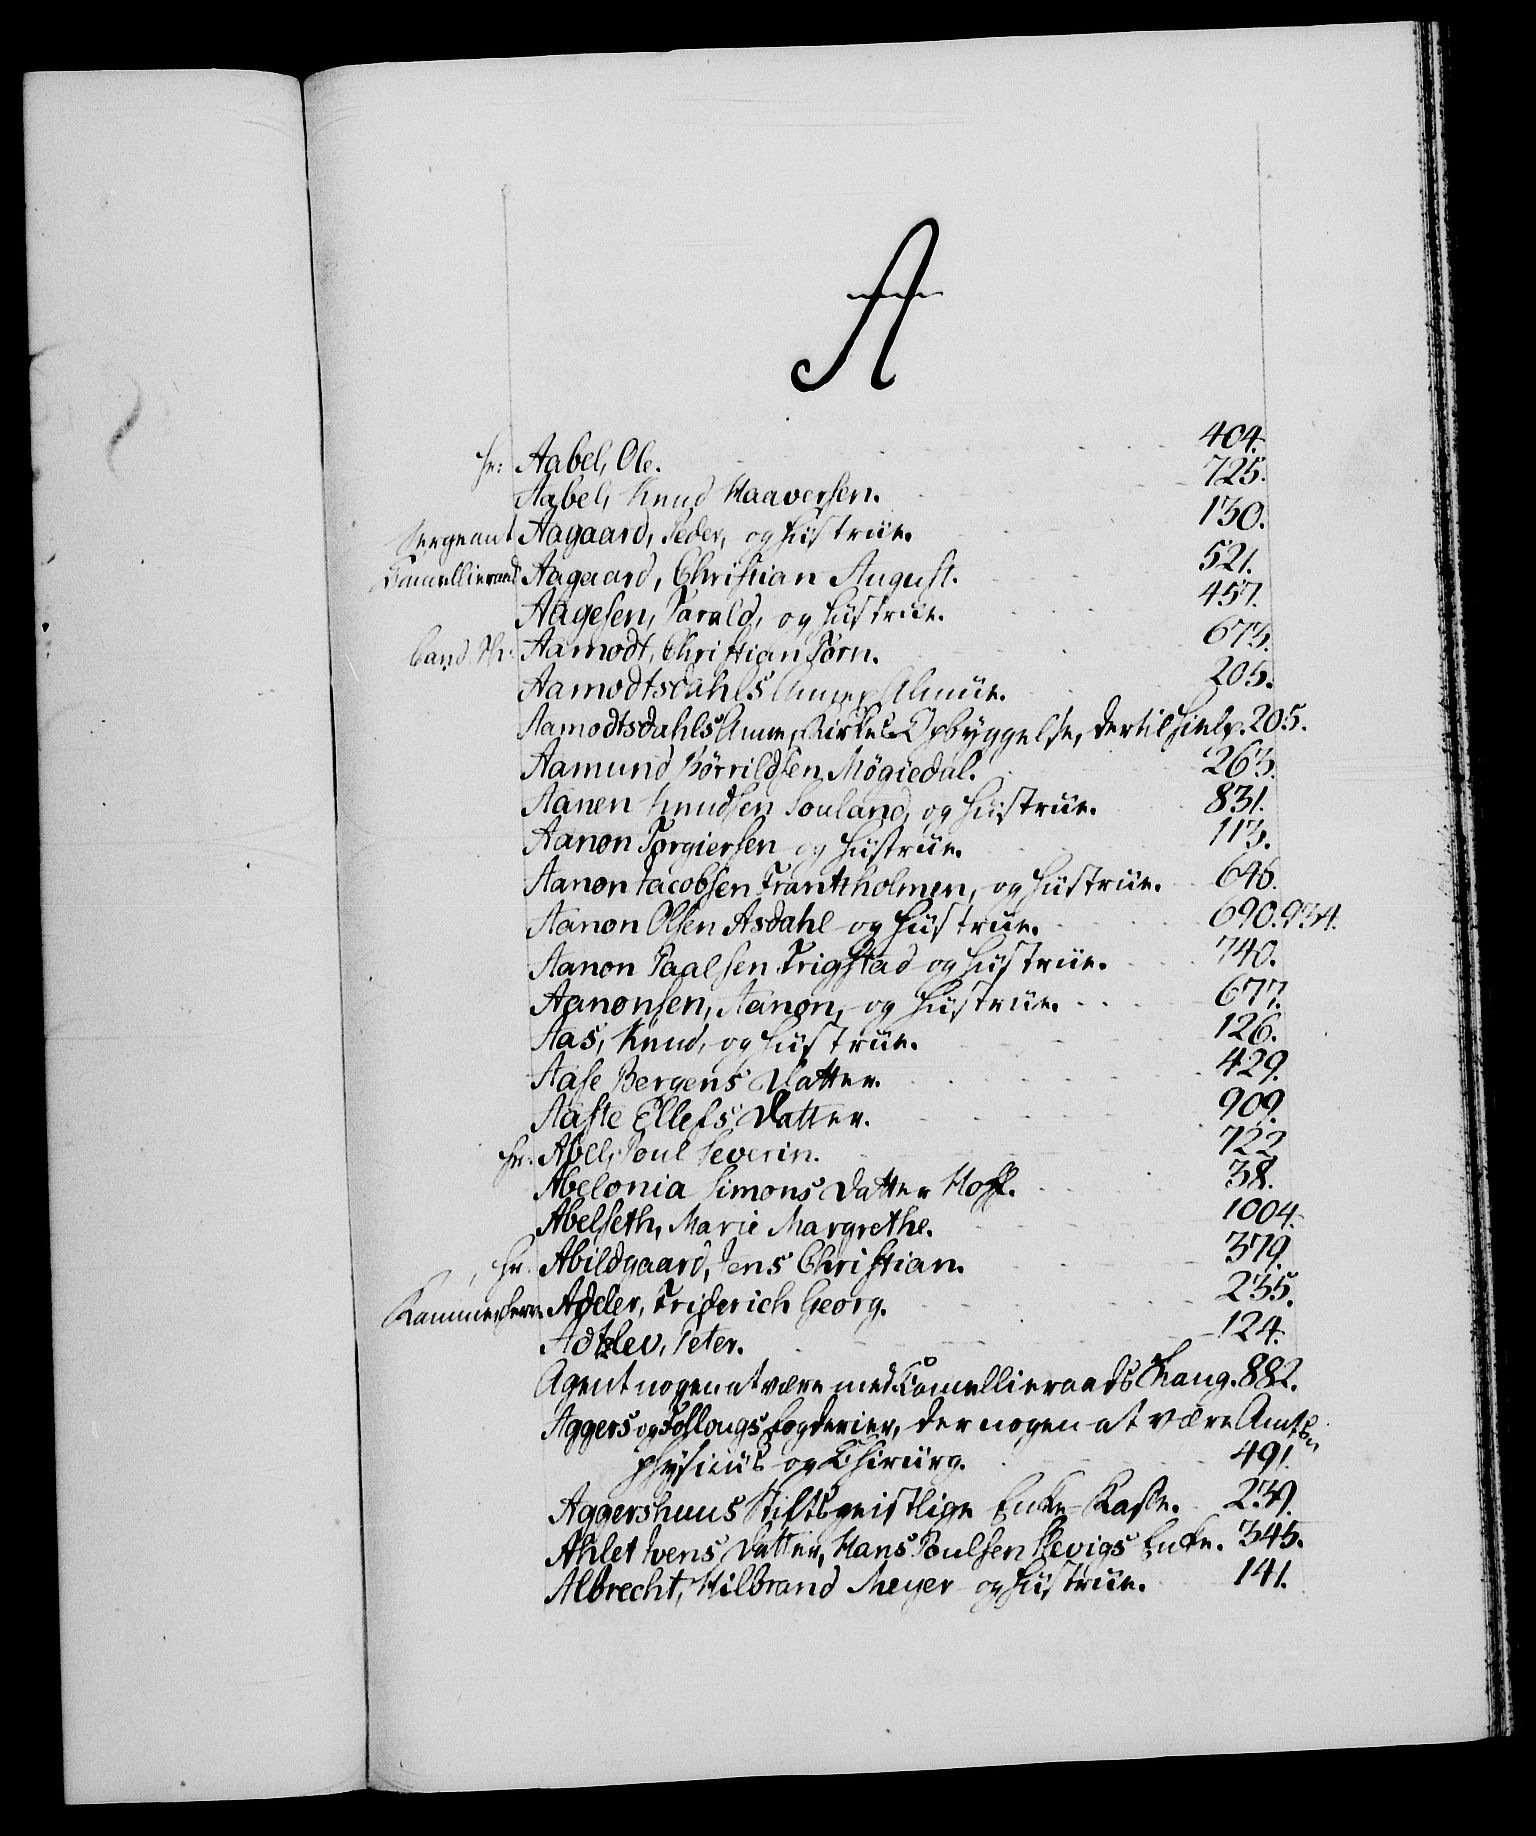 A
Hr: Aabel, Ole. 404.
Aabel, Knud Haaversen. 725.
Sergeant Aagaard, Peder, og Hustrue. 130.
Camellieraad Aagaard, Christian August. 521.
Aagesen, Tarald, og Hustrue. 457.
Cand. Th: Aamodt, Christian Jørn. 673.
Aamodtsdahls Annex Almue. 205.
Aamodtsdahls Annex Kirkes Opbyggelse, dertil Hielp. 205.
Aamund Børrildsen Møgiedal. 263.
Aanen Knudsen Souland, og Hustrue. 831.
Aanon Torgiersen og Hustrue. 113.
Aanon Jacobsen Frantzholmen, og Hustrue. 646.
Aanon Olsen Asdahl og Hustrue. 690. 934.
Aanon Paalsen Trigstad og Hustrue. 740.
Aanonsen, Aanon, og Hustrue. 677.
Aas, Knud, og Hustrue. 126.
Aase Bergens Datter. 429.
Aaste Ellefs Datter. 909.
Hr. Abel, Poul Severin. 722
Abelonia Simons Datter Hoff. 38.
Abelseth, Marie Margrethe. 1004.
Hr. Abildgaard, Jens Christian. 379.
Kammerherre Adeler, Friderich Georg. 235.
Adzlev, Peter. 124.
Agent nogen at være med Camellieraads Rang. 882.
Aggers og Follougs Fogderier, der nogen at være Amts
physicus og Chirurg. 491.
Aggershuus Stifts geistlige Enke-Kasse. 239.
Ahlet Ivens Datter, Hans Poulsen Klevigs Enke. 345.
Albrecht, Hilbrand Meyer og Hustrue. 141.